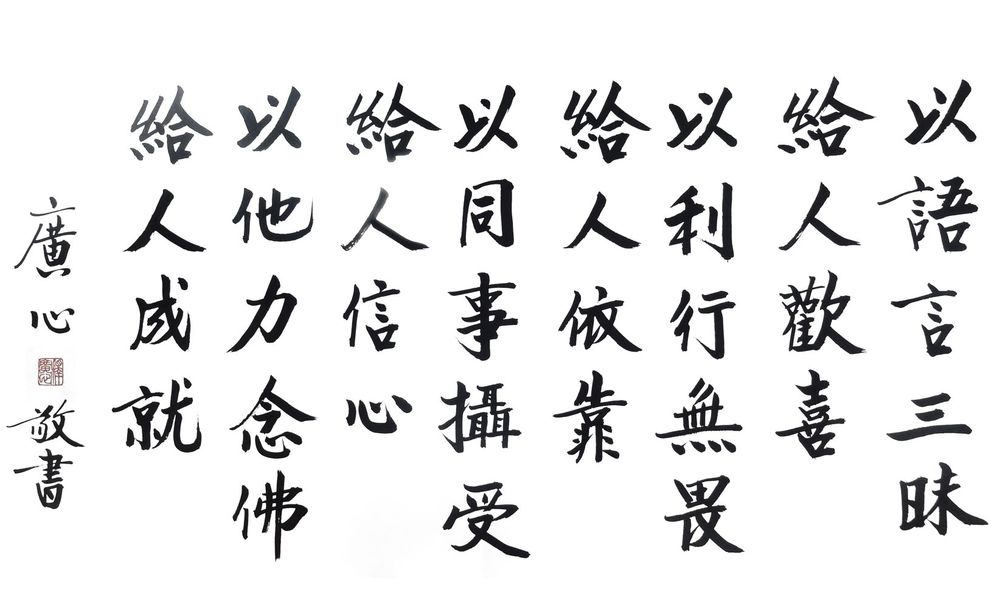 以語言三昧
給人歡喜
以利行無畏
給人依靠
以同事攝受
給人信心
以他力念佛
給人成就
廣心
敬書